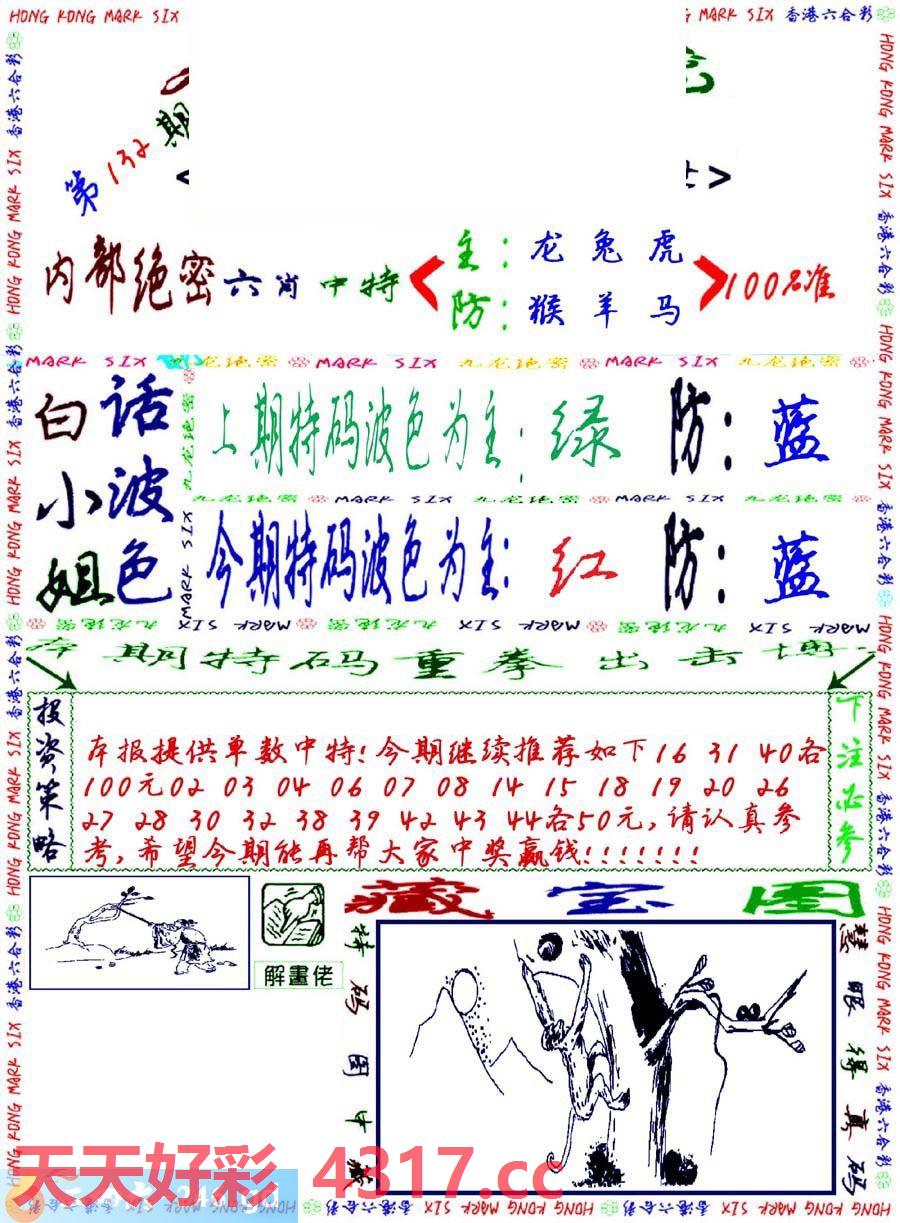 HONG KONG MARK SIX
MARK SIX 香港六合彩
第132期
内部绝密六肖中特
主：龙兔虎
防：猴羊马
100%准
MARK SIX 九龙绝密 MARK SIX 九龙绝密 MARK SIX 九龙绝密
白小姐
话波色
上期特码波色为主：绿 防：蓝
九龙绝密 MARK SIX 九龙绝密 MARK SIX 九龙绝密
今期特码波色为主：红 防：蓝
九龙绝密 MARK SIX 九龙绝密 MARK SIX 九龙绝密 MARK SIX
本期特码重拳出击博
投资策略
本报提供单数中特！今期继续推荐如下16 31 40各
100元02 03 04 06 07 08 14 15 18 19 20 26
27 28 30 32 38 39 42 43 44各50元，请认真参
考，希望今期能再帮大家中奖赢钱！！！！！！！
下注必参
藏宝图
解畫佬
特码图中藏
慧眼得真码
天天好彩 4317.cc
HONG KONG MARK SIX 香港六合彩